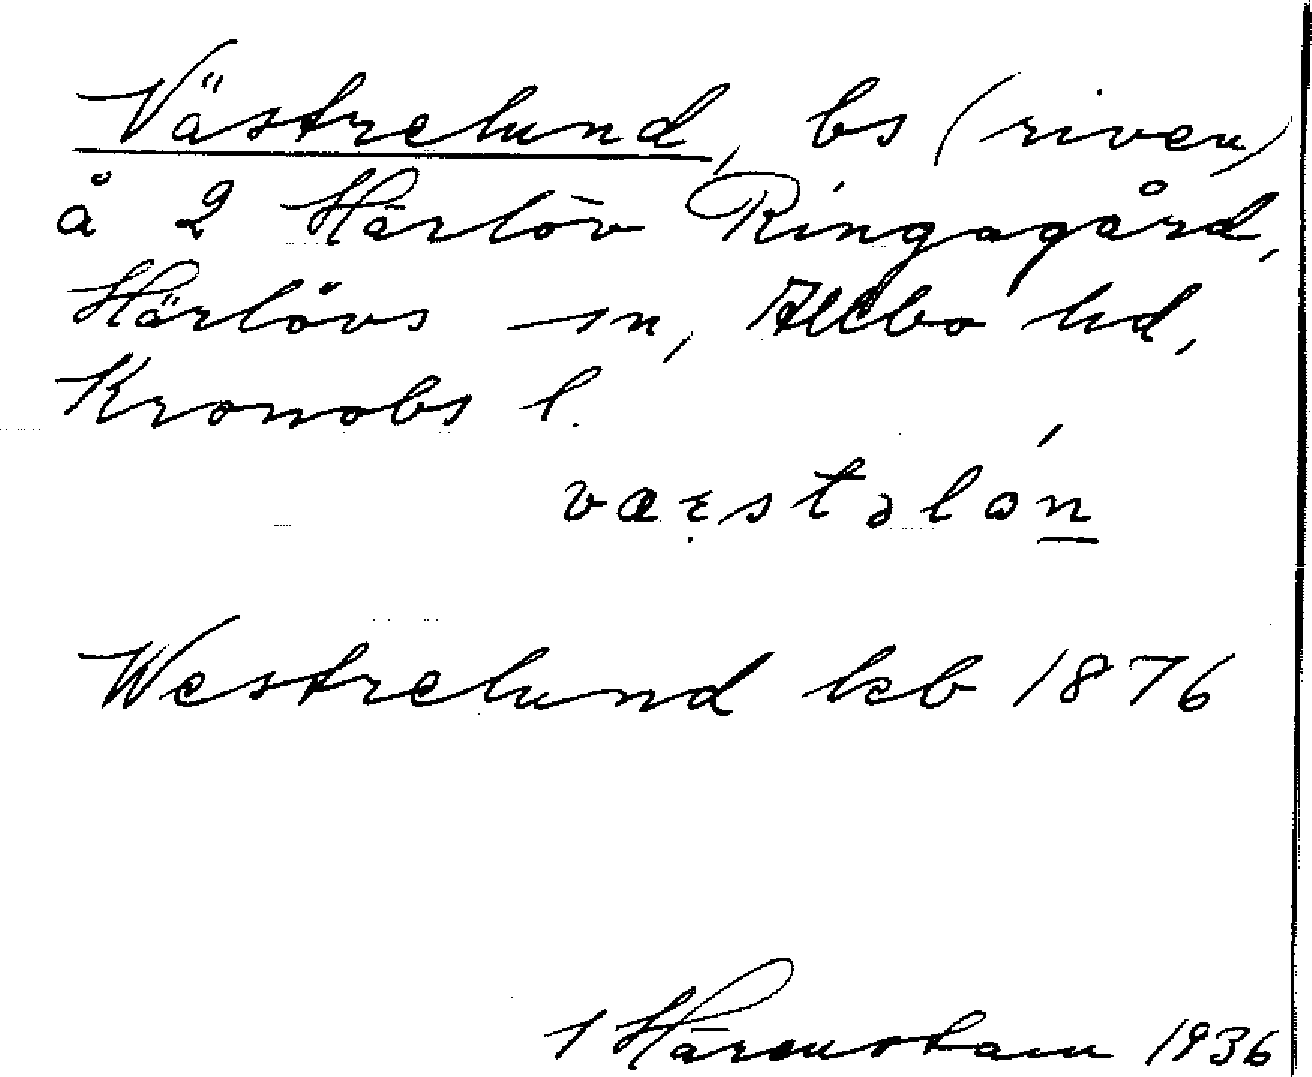 Västrelund, bs (riven)
å 2 Härlöv Ringagård,
Härlövs sn, Allbo hd,
Kronobs l.
værstəlón
Westrelund kb 1876
Härenstam 1936